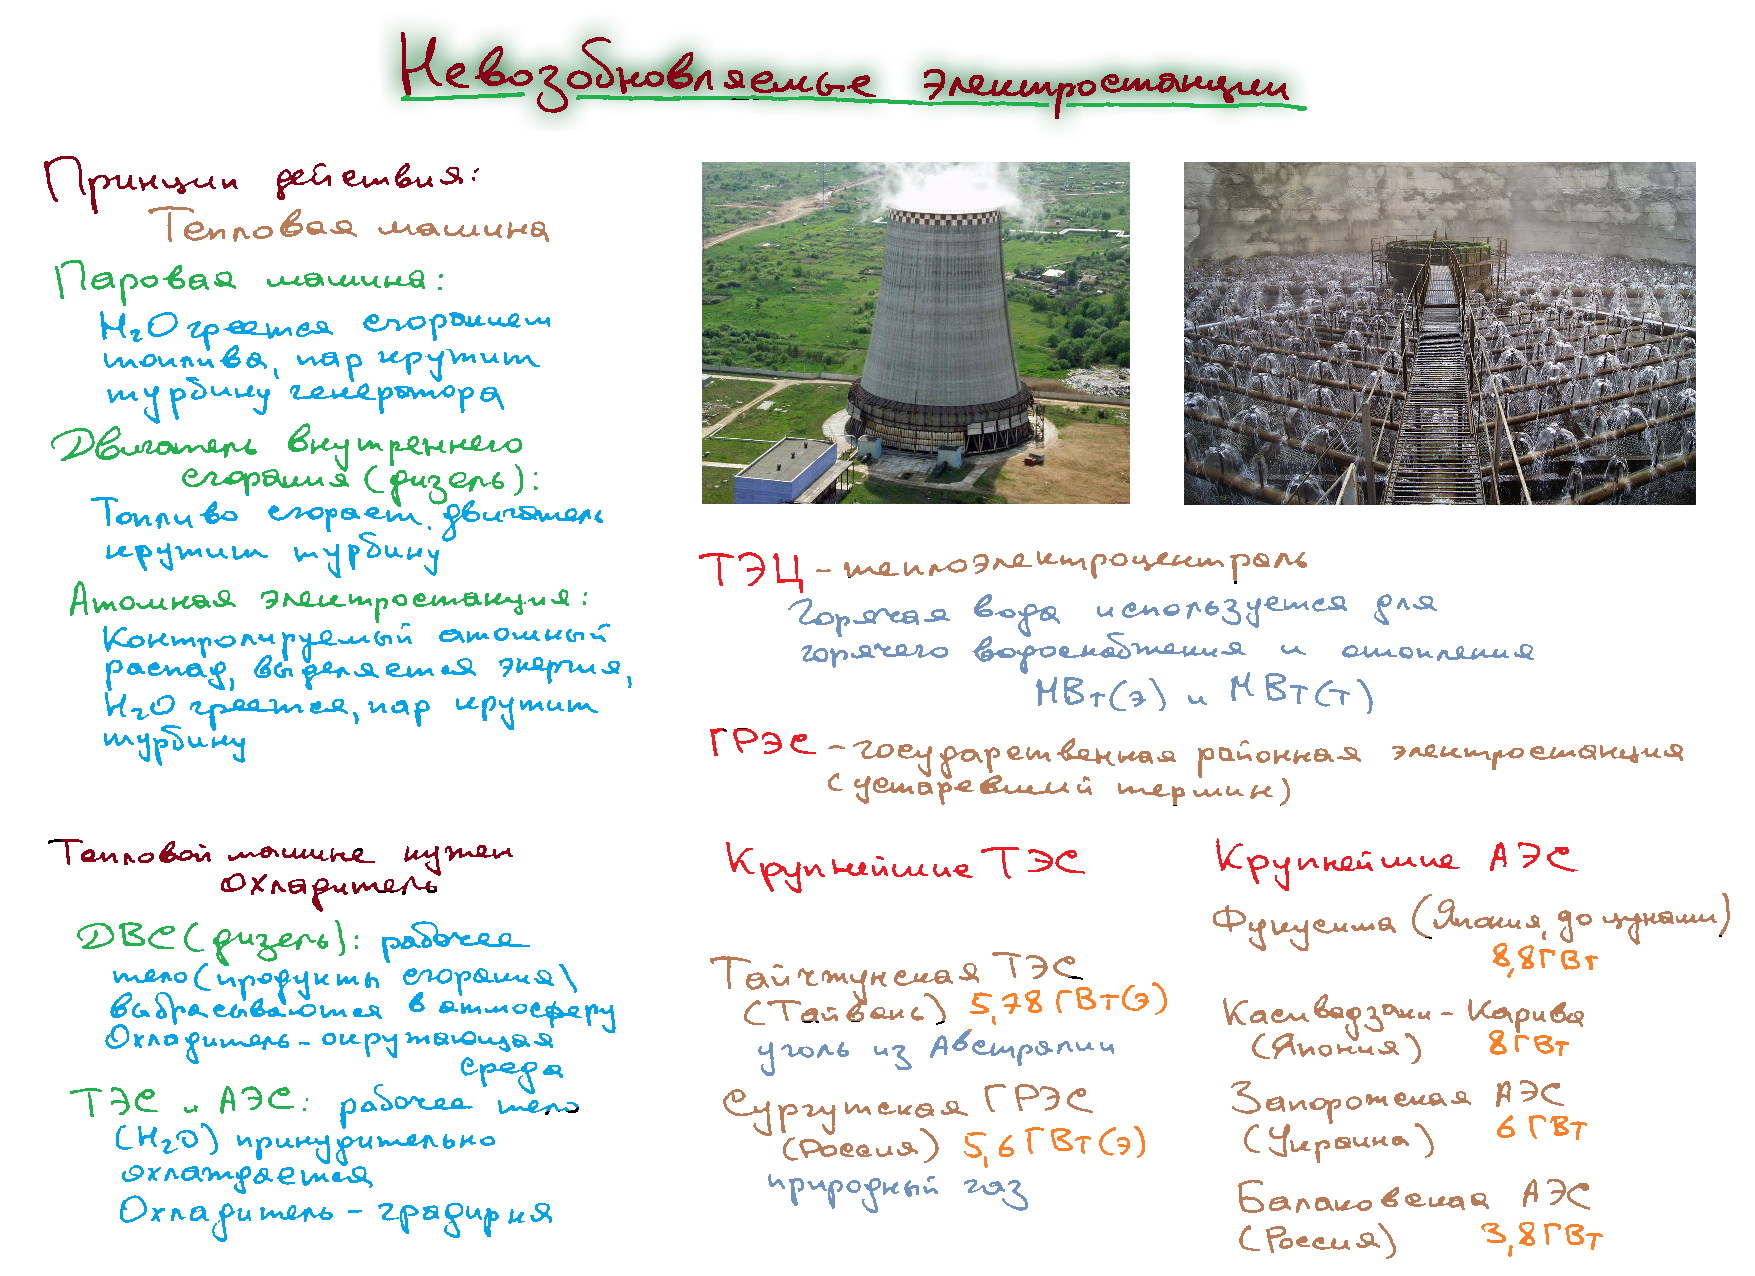 Невозобновляемые электростанции
Принцип действия:
Тепловая машина
Паровая машина:
H₂O греется сгоранием
топлива, пар крутит
турбину генератора
Двигатель внутреннего
сгорания (дизель):
Топливо сгорает, двигатель
крутит турбину
Атомная электростанция:
Контролируемый атомный
распад, выделяется энергия,
H₂O греется, пар крутит
турбину
Тепловой машине нужен
охладитель
ДВС (дизель): рабочее
тело (продукты сгорания)
выбрасываются в атмосферу
Охладитель - окружающая
среда
ТЭС и АЭС: рабочее тело
(H₂O) принудительно
охлаждается
Охладитель - градирня
ТЭЦ - теплоэлектроцентраль
Горячая вода используется для
горячего водоснабжения и отопления
МВт(э) и МВт(т)
ГРЭС - государственная районная электростанция
(устаревший термин)
Крупнейшие ТЭС
Тайчтунская ТЭС
(Тайвань) 5,78 ГВт(э)
уголь из Австралии
Сургутская ГРЭС
(Россия) 5,6 ГВт(э)
природный газ
Крупнейшие АЭС
Фукусима (Япония, до цунами)
8,8 ГВт
Касивадзаки - Карива
(Япония) 8 ГВт
Запорожская АЭС
(Украина) 6 ГВт
Балаковская АЭС
(Россия) 3,8 ГВт